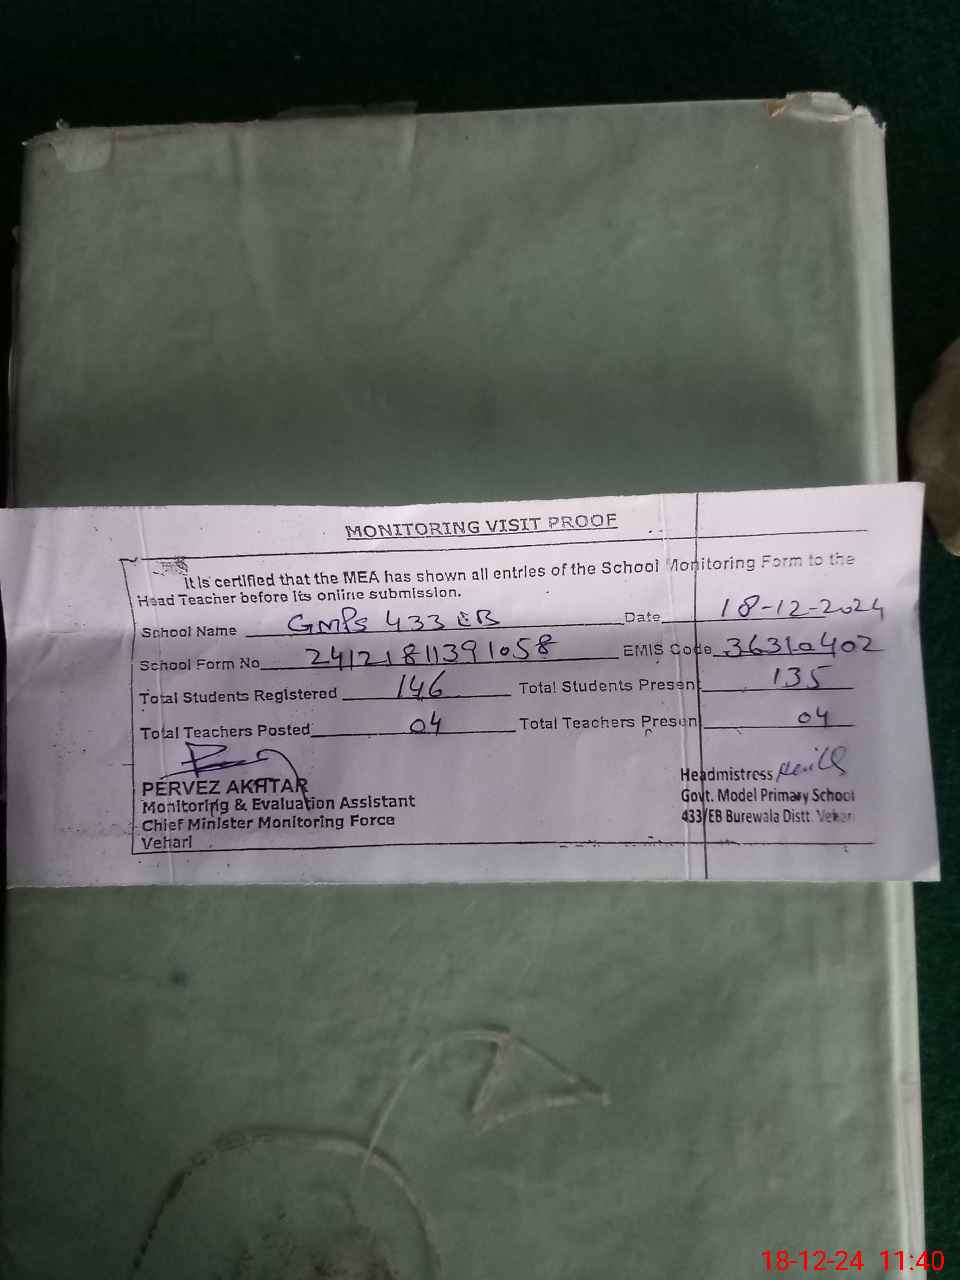 MONITORING VISIT PROOF
It is certified that the MEA has shown all entries of the School Monitoring Form to the
Head Teacher before its online submission.
School Name GMPS 433 EB Date 18-12-2024
School Form No 24121811391058 EMIS Code 36310402
Total Students Registered 146 Total Students Present 135
Total Teachers Posted 04 Total Teachers Presen 04
PERVEZ AKHTAR
Monitoring & Evaluation Assistant
Chief Minister Monitoring Force
Vehari
Headmistress
Govt. Model Primary School
433/EB Burewala Distt. Vehari
18-12-24 11:40